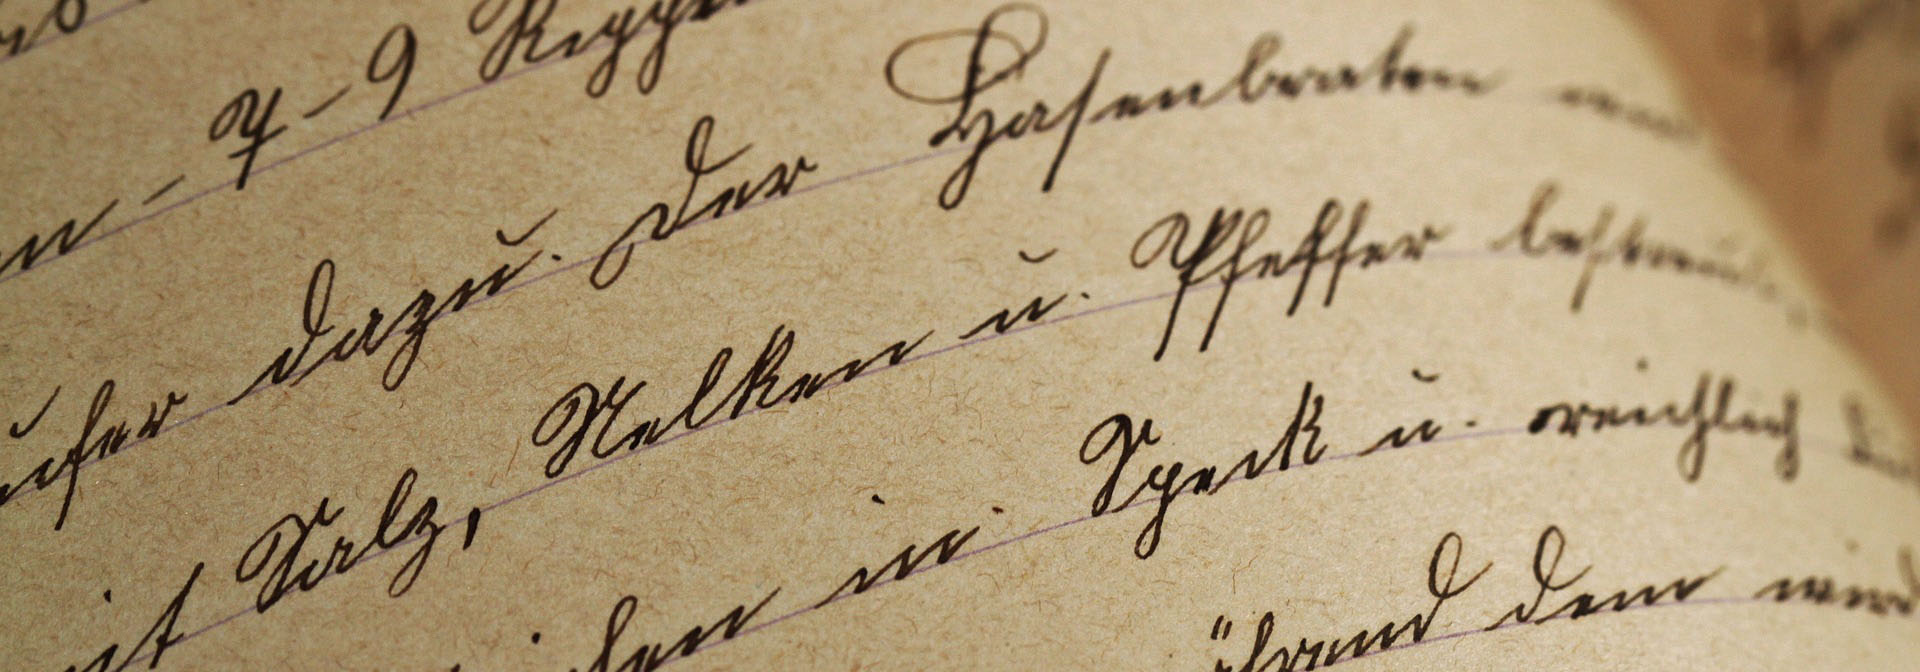 7 – 9 Rippe
ufer dazu. Der Hasenbraten
it Salz, Nelken u. Pfeffer bestreu
in Speck u. reichlich
ährend dem wird